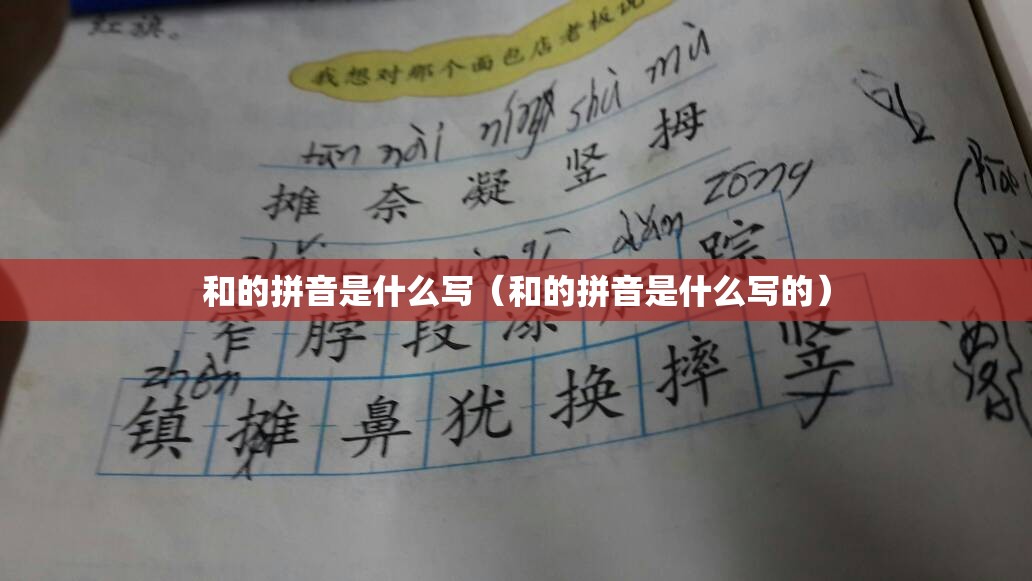 红旗。
我想对那个面包店老板说
tān nài níng shù mǔ
摊 奈 凝 竖 拇
zōng
踪
和的拼音是什么写（和的拼音是什么写的）
窄 脖 段 漆
zhèn
镇 摊 鼻 犹 换 摔 竖